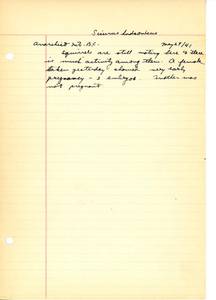 Sciurus hudsonicus
Anarchist Mt. B.C. May 29/41
Squirrels are still mating here & there
is much activity among them. A female
taken yesterday showed very early
pregnancy - 2 embryos. Another was
not pregnant